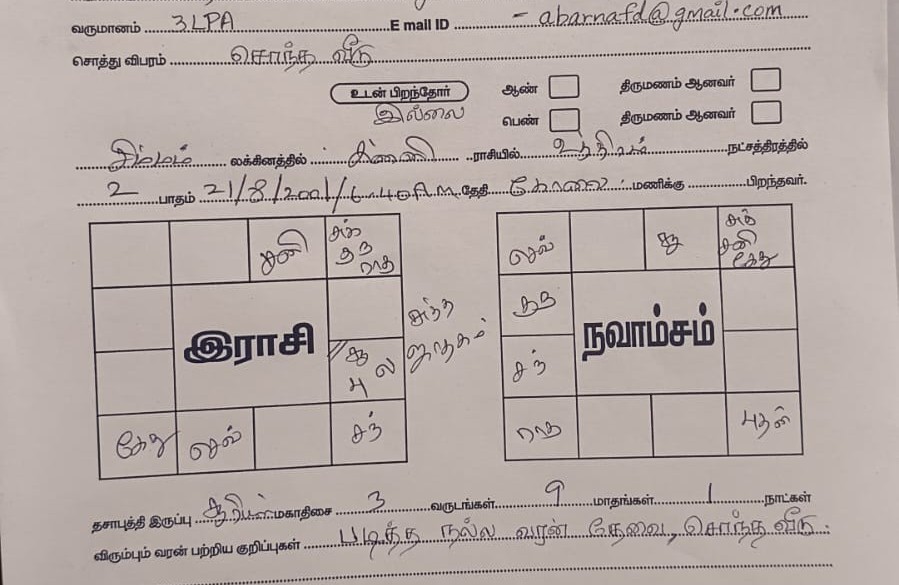 வருமானம் 3LPA E mail ID - abarnafd@gmail.com
சொத்து விபரம் சொந்த வீடு
உடன் பிறந்தோர் ஆண் திருமணம் ஆனவர்
இல்லை பெண் திருமணம் ஆனவர்
சிம்மம் லக்கினத்தில் கன்னி ராசியில் உத்திரம் நட்சத்திரத்தில்
2 பாதம் 21/8/2001/6.40AM தேதி காலை மணிக்கு பிறந்தவர்.
சனி
சுக்
குரு
ராகு
இராசி
சுத்த
ஜாதகம்
சூ
பு ல
கேது செவ் சந்
செவ் சூ
சுக்
சனி
கேது
குரு
நவாம்சம்
சந்
ராகு புதன்
தசாபுத்தி இருப்பு சூரியன் மகாதிசை 3 வருடங்கள் 9 மாதங்கள் 1 நாட்கள்
விரும்பும் வரன் பற்றிய குறிப்புகள் படித்த நல்ல வரன் தேவை, சொந்த வீடு.